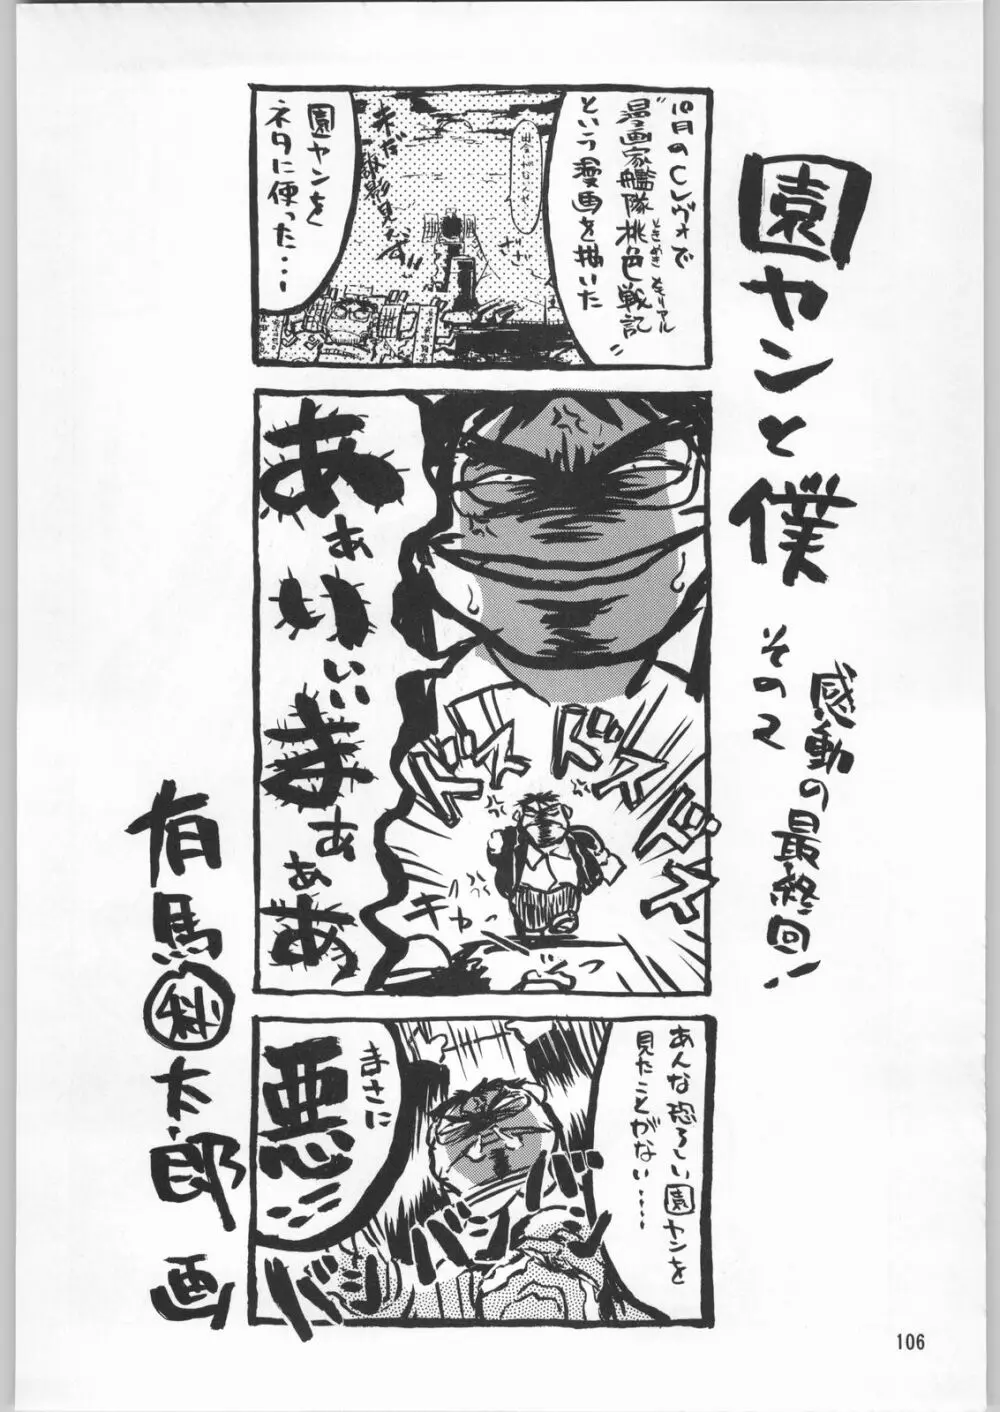 園ヤンと僕
その2
感動の最終回!
10月のCレヴォで
"漫画家艦隊桃色戦記"
ときめきメモリアル
という漫画を描いた
園ヤンを
ネタに使った・・・
ざざ
あぁいぃまぁぁあ
ドスドスドスドス
キッ
あんな恐ろしい園ヤンを
見たことがない・・・・
まさに
悪
バンバンバン
有馬㊙太郎 画
106